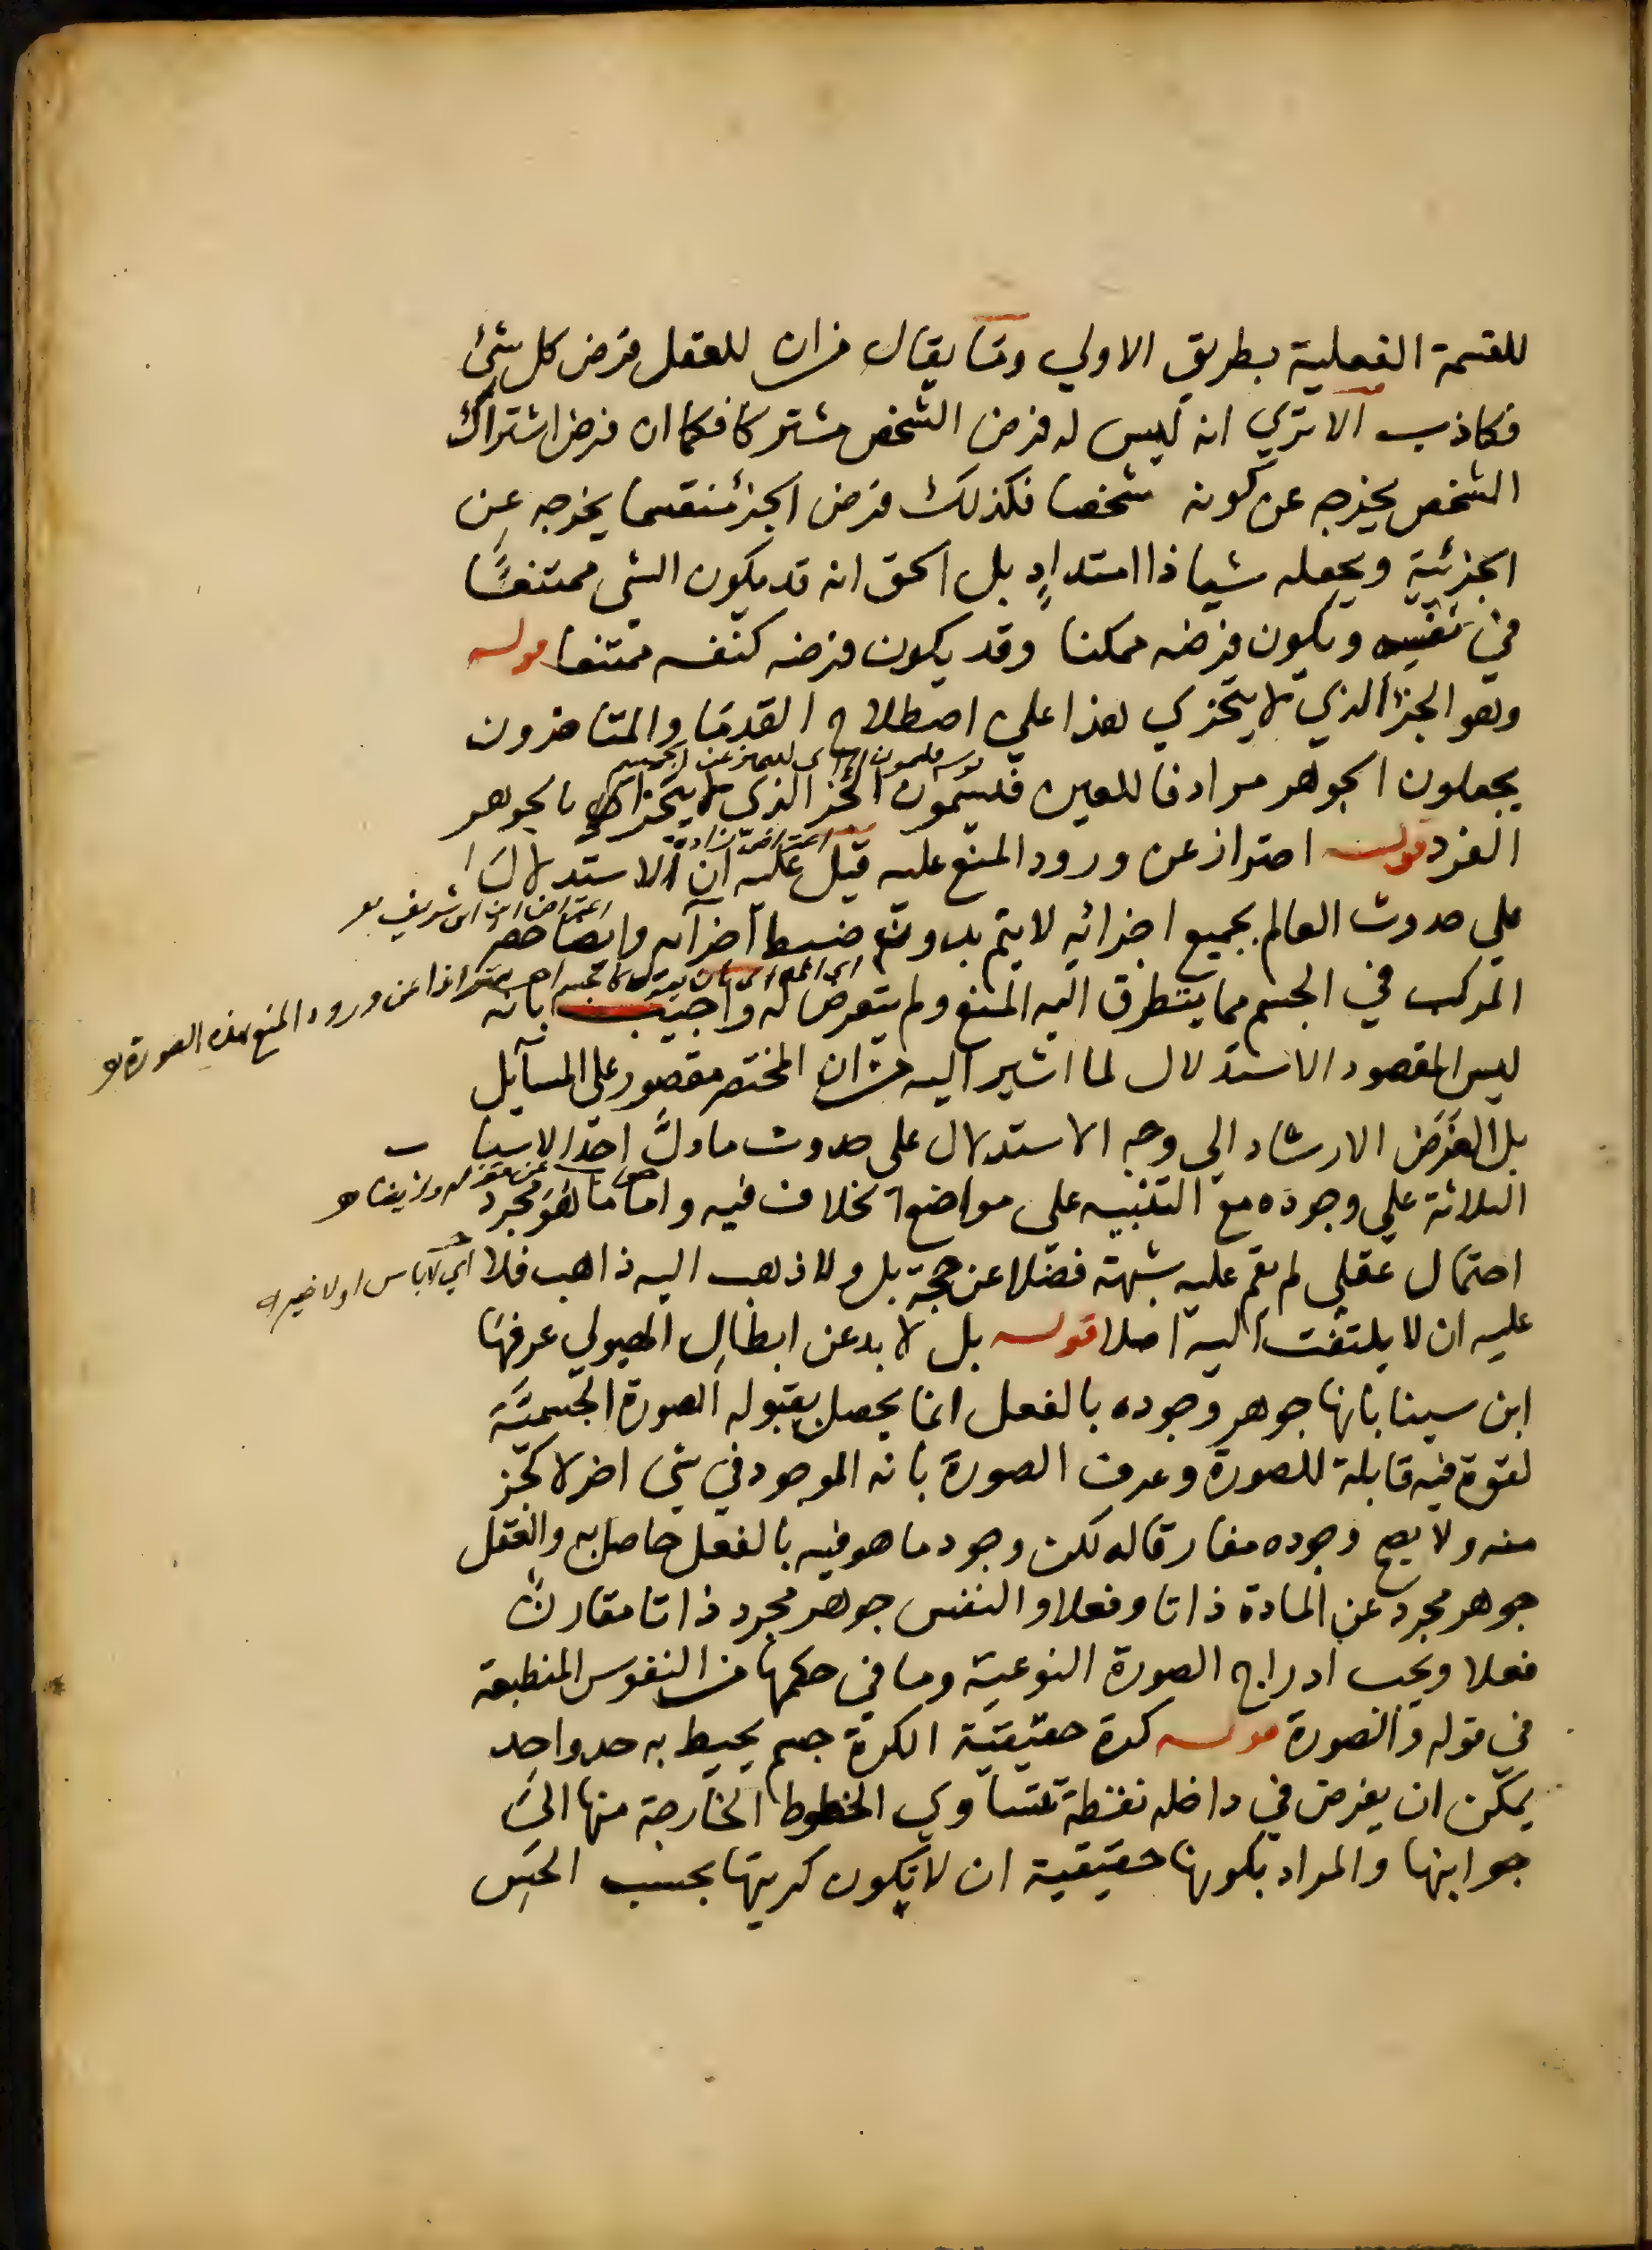 للقسمة الفعلية بطريق الاولي وما يقال من ان للعقل فرض كل شئ
فكاذب الا تري انه ليس له فرض الشخص مشتركا فكما ان فرض اشتراك
الشخص يخرجه عن كونه شخصا فكذلك فرض الجزء منقسما يخرجه عن
الجزئية ويجعله شيا ذا امتداد بل الحق انه قد يكون الشي ممتنعا
في نفسه ويكون فرضه ممكنا وقد يكون فرضه كنفسه ممتنعا قوله
وهو الجزء الذي لا يتجزي هذا علي اصطلاح القدما والمتاخرون
يجعلون الجوهر مرادفا للعين فيسمون الجزء الذي لا يتجزا بالجوهر
الفرد قوله احتراز عن ورود المنع عليه قيل عليه ان الاستدلال
علي حدوث العالم بجميع اجزائه لا يتم بدون ضبط اجزائه وايضا حصر
اعتراض ابن ابي شريف
المركب في الجسم مما يتطرق اليه المنع ولم يتعرض له واجيب بانه
احترازا عن ورود المنع بهذه الصورة
ليس المقصود الاستدلال لما اشير اليه من ان المختصر مقصور علي المسايل
بل الغرض الارشاد الي وجه الاستدلال علي حدوث ما دل احد الاسباب
الثلاثة علي وجوده مع التنبيه علي مواضع الخلاف فيه واما ما هو مجرد
احتمال عقلي لم يقم عليه شبهة فضلا عن حجة بل ولا ذهب اليه ذاهب فلا
اي لا باس او لا ضير
عليه ان لا يلتفت اليه اصلا قوله بل لا بد عن ابطال الهيولي عرفها
ابن سينا بانها جوهر وجوده بالفعل انما يحصل بقبوله الصورة الجسمية
لقوة فيه قابلة للصورة وعرف الصورة بانه الموجود في شي اخر لا كجزء
منه ولا يصح وجوده مفارقا له لكن وجود ما هو فيه بالفعل حاصل به والعقل
جوهر مجرد عن المادة ذاتا وفعلا والنفس جوهر مجرد ذاتا مقارن
فعلا ويجب ادراج الصورة النوعية وما في حكمها من النفوس المنطبعة
في قوله والصورة قوله كرة حقيقية الكرة جسم يحيط به حد واحد
يمكن ان يفرض في داخله نقطة تتساوي الخطوط الخارجة منها الي
جوانبها والمراد بكونها حقيقية ان لا تكون كريتها بحسب الحس